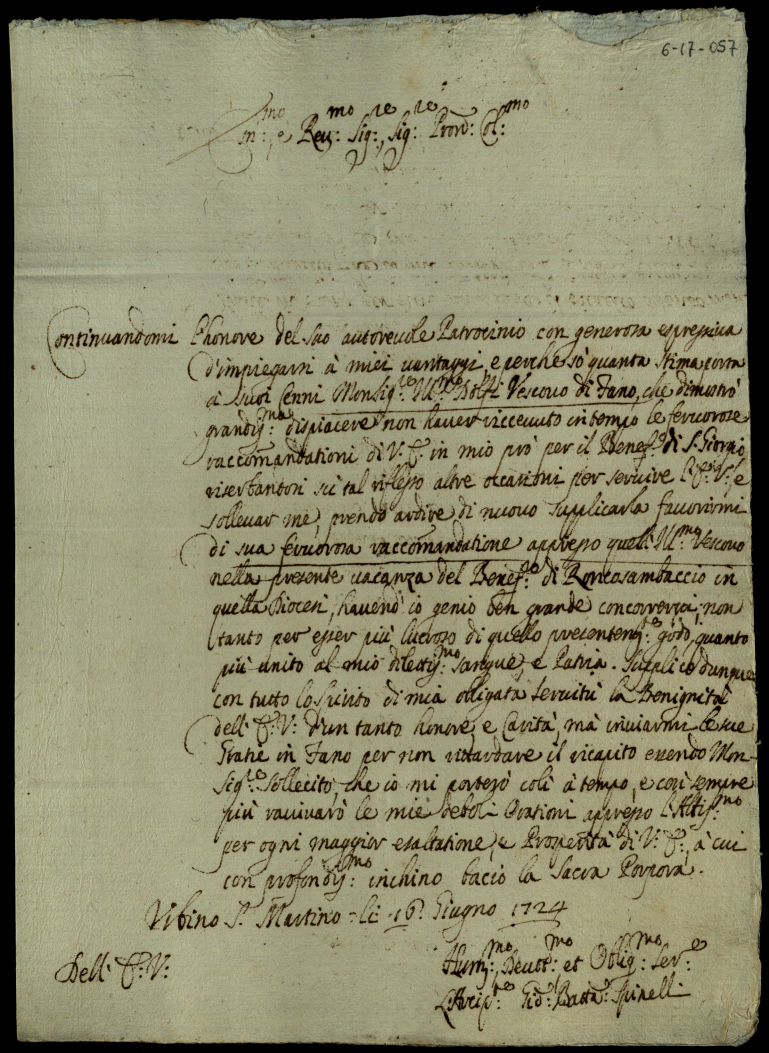 6-17-057
Em:mo e Reu:mo Sig:re, Sig:re Pron: Col:mo
Continuandomi l'honore del suo autoreuole Patrocinio con generosa espressiua
d'impiegarsi à miei uantaggi, e perche sò quanta stima porta
à suoi Cenni Monsig:re Ill:mo Bolfi Vescouo di Fano, che dimostrò
grandis:mo dispiacere non hauer riceeuuto in tempo le feruorose
raccomandationi di V: E: in mio prò per il Benef:o di S. Giorgio
riserbandosi sù tal riflesso altre occasioni per seruire l'E: V:, e
solleuar me, prendo ardire di nuouo supplicarla fauorirmi
di sua feruorosa raccomandatione appresso quell'Ill:mo Vescouo
nella presente uacanza del Benef:o di Roncosambaccio in
quella Diocesi, hauend'io genio ben grande concorrerui, non
tanto per esser più lucroso di quello presentem:te godo, quanto
più unito al mio dilettis:mo sangue, e Patria. Supplico dunque
con tutto lo spirito di mia obligata seruitù la Benignità
dell'E: V: d'un tanto honore, e Carità, mà inuiarmi le sue
Gratie in Fano per non ritardare il ricapito essendo Mon-
sig:re sollecito, che io mi porterò colì à tempo, e così sempre
più rauiuarò le mie deboli Orationi appresso l'Altis:mo
per ogni maggior esaltatione, e Prosperità di V: E:, à cui
con profondis:mo inchino bacio la Sacra Porpora.
Vrbino S. Martino li 16 Giugno 1724
Dell'E: V:
Hum:mo, Deuot:mo et Oblig:mo Ser:e
L'Arcip:te Gio: Batta: Spinelli